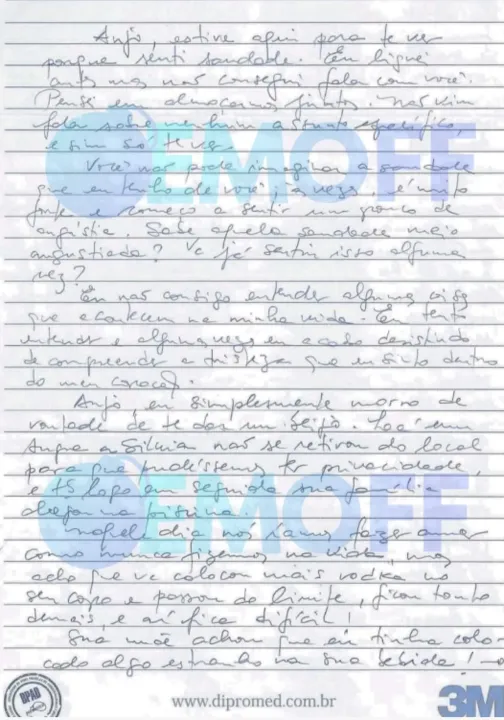 Anjo, estive aqui para te ver
porque senti saudade. Eu liguei
antes mas não consegui falar com você.
Pensei em almoçarmos juntos. Não vim
falar sobre nenhum assunto específico,
e sim só te ver.
Você não pode imaginar a saudade
que eu tenho de você; às vezes, é muito
forte e começo a sentir um pouco de
angústia. Sabe aquela saudade meio
angustiada? Vc já sentiu isso alguma
vez?
Eu não consigo entender algumas coisas
que acontecem na minha vida. Eu tento
entender e algumas vezes eu acabo desistindo
de compreender a tristeza que eu sinto dentro
do meu coração.
Anjo, eu simplesmente morro de
vontade de te dar um beijo. Lá em
Angra a Silvia não se retirou do local
para que pudéssemos ter privacidade,
e logo em seguida sua família
chegou na piscina.
Naquele dia nós íamos fazer amor
como nunca fizemos na vida, mas
acho que vc colocou mais vodka no
seu copo e passou do limite, ficou tonto
demais, e aí fica difícil!
Sua mãe achou que eu tinha colo-
cado algo estranho na sua bebida!
DEMOFF
DEMOFF
DPAD
www.dipromed.com.br
3M